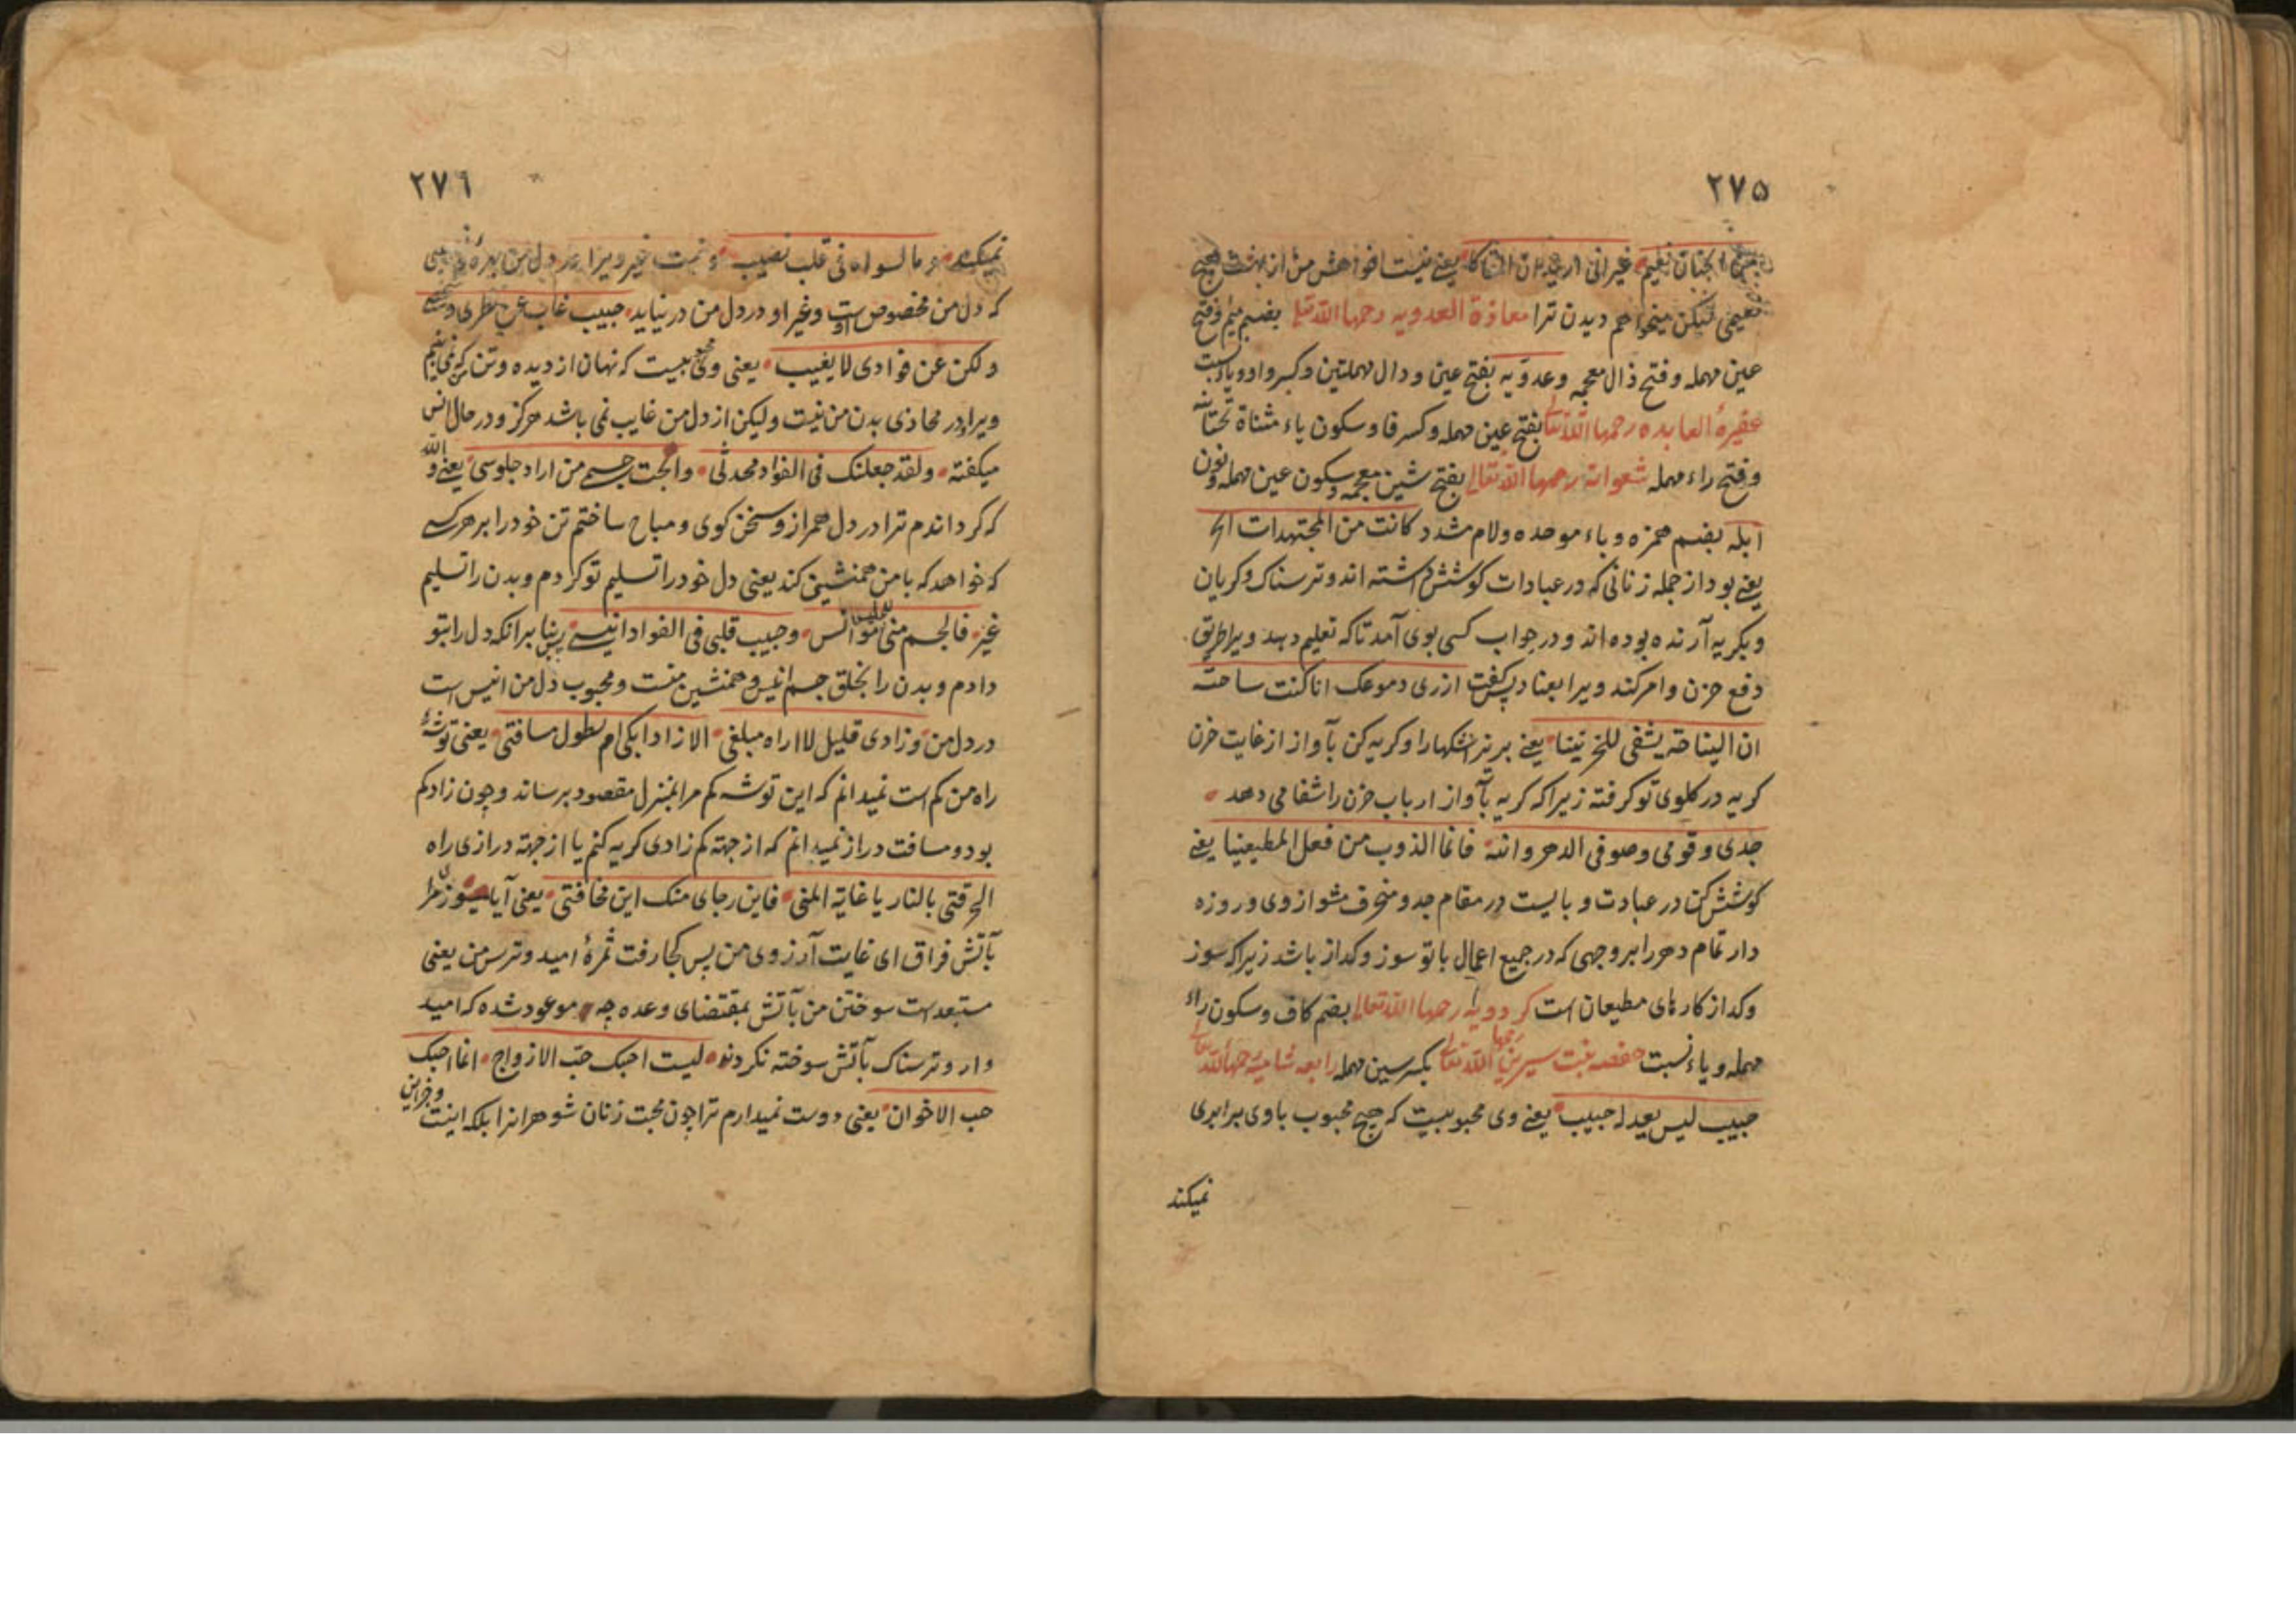 ۲۷۵
الجنان نعیم غیر انی ارید لان اراکا یعنی نیست خواهش من از بهشت
نعیمی لیکن میخواهم دیدن ترا معاذة العدویه رحمها الله تعالی بضم میم و فتح
عین مهمله و فتح ذال معجمه وعدویه بفتح عین و دال مهملتین و کسر واو و یاء نسبت
عفیرهٔ العابده رحمها الله تعالی بفتح عین مهمله و کسر فا و سکون یاء مثناة تحتانیه
و فتح راء مهمله شعوانه رحمها الله تعالی بفتح شین معجمه و سکون عین مهمله و نون
ابله بضم همزه و باء موحده ولام مشدد کانت من المجتهدات
یعنی بود از جمله زنانی که در عبادات کوشش داشته اند و ترسناک و کریان
و بکریه آرنده بوده اند و در جواب کسی بوی آمد تاکه تعلیم دهد ویرا طریق
دفع حزن و امر کند ویرا بعبادت پس کفت اذری دموعک اما کنت ساجته
ان النیاحة یشفی للحزنینا یعنی بریز اشکها را و کریه کن بآواز از غایت حزن
کریه در کلوی تو کرفته زیرا که کریه بآواز ارباب حزن را شفا می دهد
جدی و قومی وصومی الدهر دائبة فانما الذوب من فعل المطیعینا یعنی
کوشش کن در عبادت و بایست در مقام جد و منحرف مشو از وی و روزه
دار تمام دهر را بر وجهی که در جمیع اعمال با تو سوز و کداز باشد زیرا که سوز
و کداز کارهای مطیعان است کردویه رحمها الله تعالی بضم کاف و سکون راء
مهمله و یاء نسبت حفصه بنت سیرین رحمها الله تعالی بکسر سین مهمله رابعه شامیه رحمها الله تعالی
حبیب لیس یعدله حبیب یعنی وی محبوبیست که هیچ محبوب با وی برابری
نمیکند
۲۷۶
نمیکند و ما لسواه فی قلب نصیب و نیست غیر ویرا در دل من بهرهٔ یعنی
که دل من مخصوص اوست و غیر او در دل من در نیاید حبیب غاب عن بصری و شخصی
ولکن عن فوادی لا یغیب یعنی وی محبوبیست که نهان از دیده و تن که نمی بینم
ویرا و در محاذی بدن من نیست ولیکن از دل من غایب نمی باشد هرکز و در حال انس
میکفته ولقد جعلتک فی الفواد محدثی وابحت جسمی من اراد جلوسی یعنی والله
که کرداندم ترا در دل همراز و سخن کوی و مباح ساختم تن خود را بر هر کسی
که خواهد که با من همنشینی کند یعنی دل خود را تسلیم تو کردم و بدن را تسلیم
غیر فالجسم منی للجلیس موانس وحبیب قلبی فی الفواد انیسی پس بنا بر انکه دل را بتو
دادم و بدن را بخلق جسم انیس و همنشین منست و محبوب دل من انیس است
در دل من وزادی قلیل لا اراه مبلغی الا زاد ابکی ام لطول مسافتی یعنی توشهٔ
راه من کم است نمیدانم که این توشه کم مرا بمنزل مقصود برساند و چون زاد کم
بود و مسافت دراز نمیدانم که از جهة کم زادی کریه کنم یا از جهة درازی راه
اتحرقنی بالنار یا غایة المنی فاین رجای منک این مخافتی یعنی آیا میسوزی مرا
بآتش فراق ای غایت آرزوی من پس کجا رفت ثمرهٔ امید و ترس من یعنی
مستبعد است سوختن من بآتش بمقتضای وعده چه موعود شده که امید
وار و ترسناک بآتش سوخته نکردند لیست احبک حب الازواج انما احبک
حب الاخوان یعنی دوست نمیدارم ترا چون محبت زنان شوهرانرا بلکه اینست و جز این